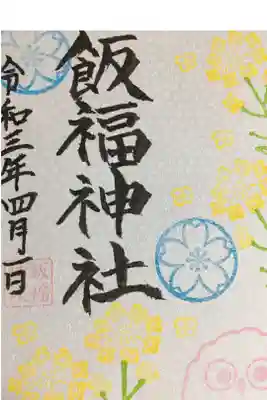 飯福神社
令和三年四月一日